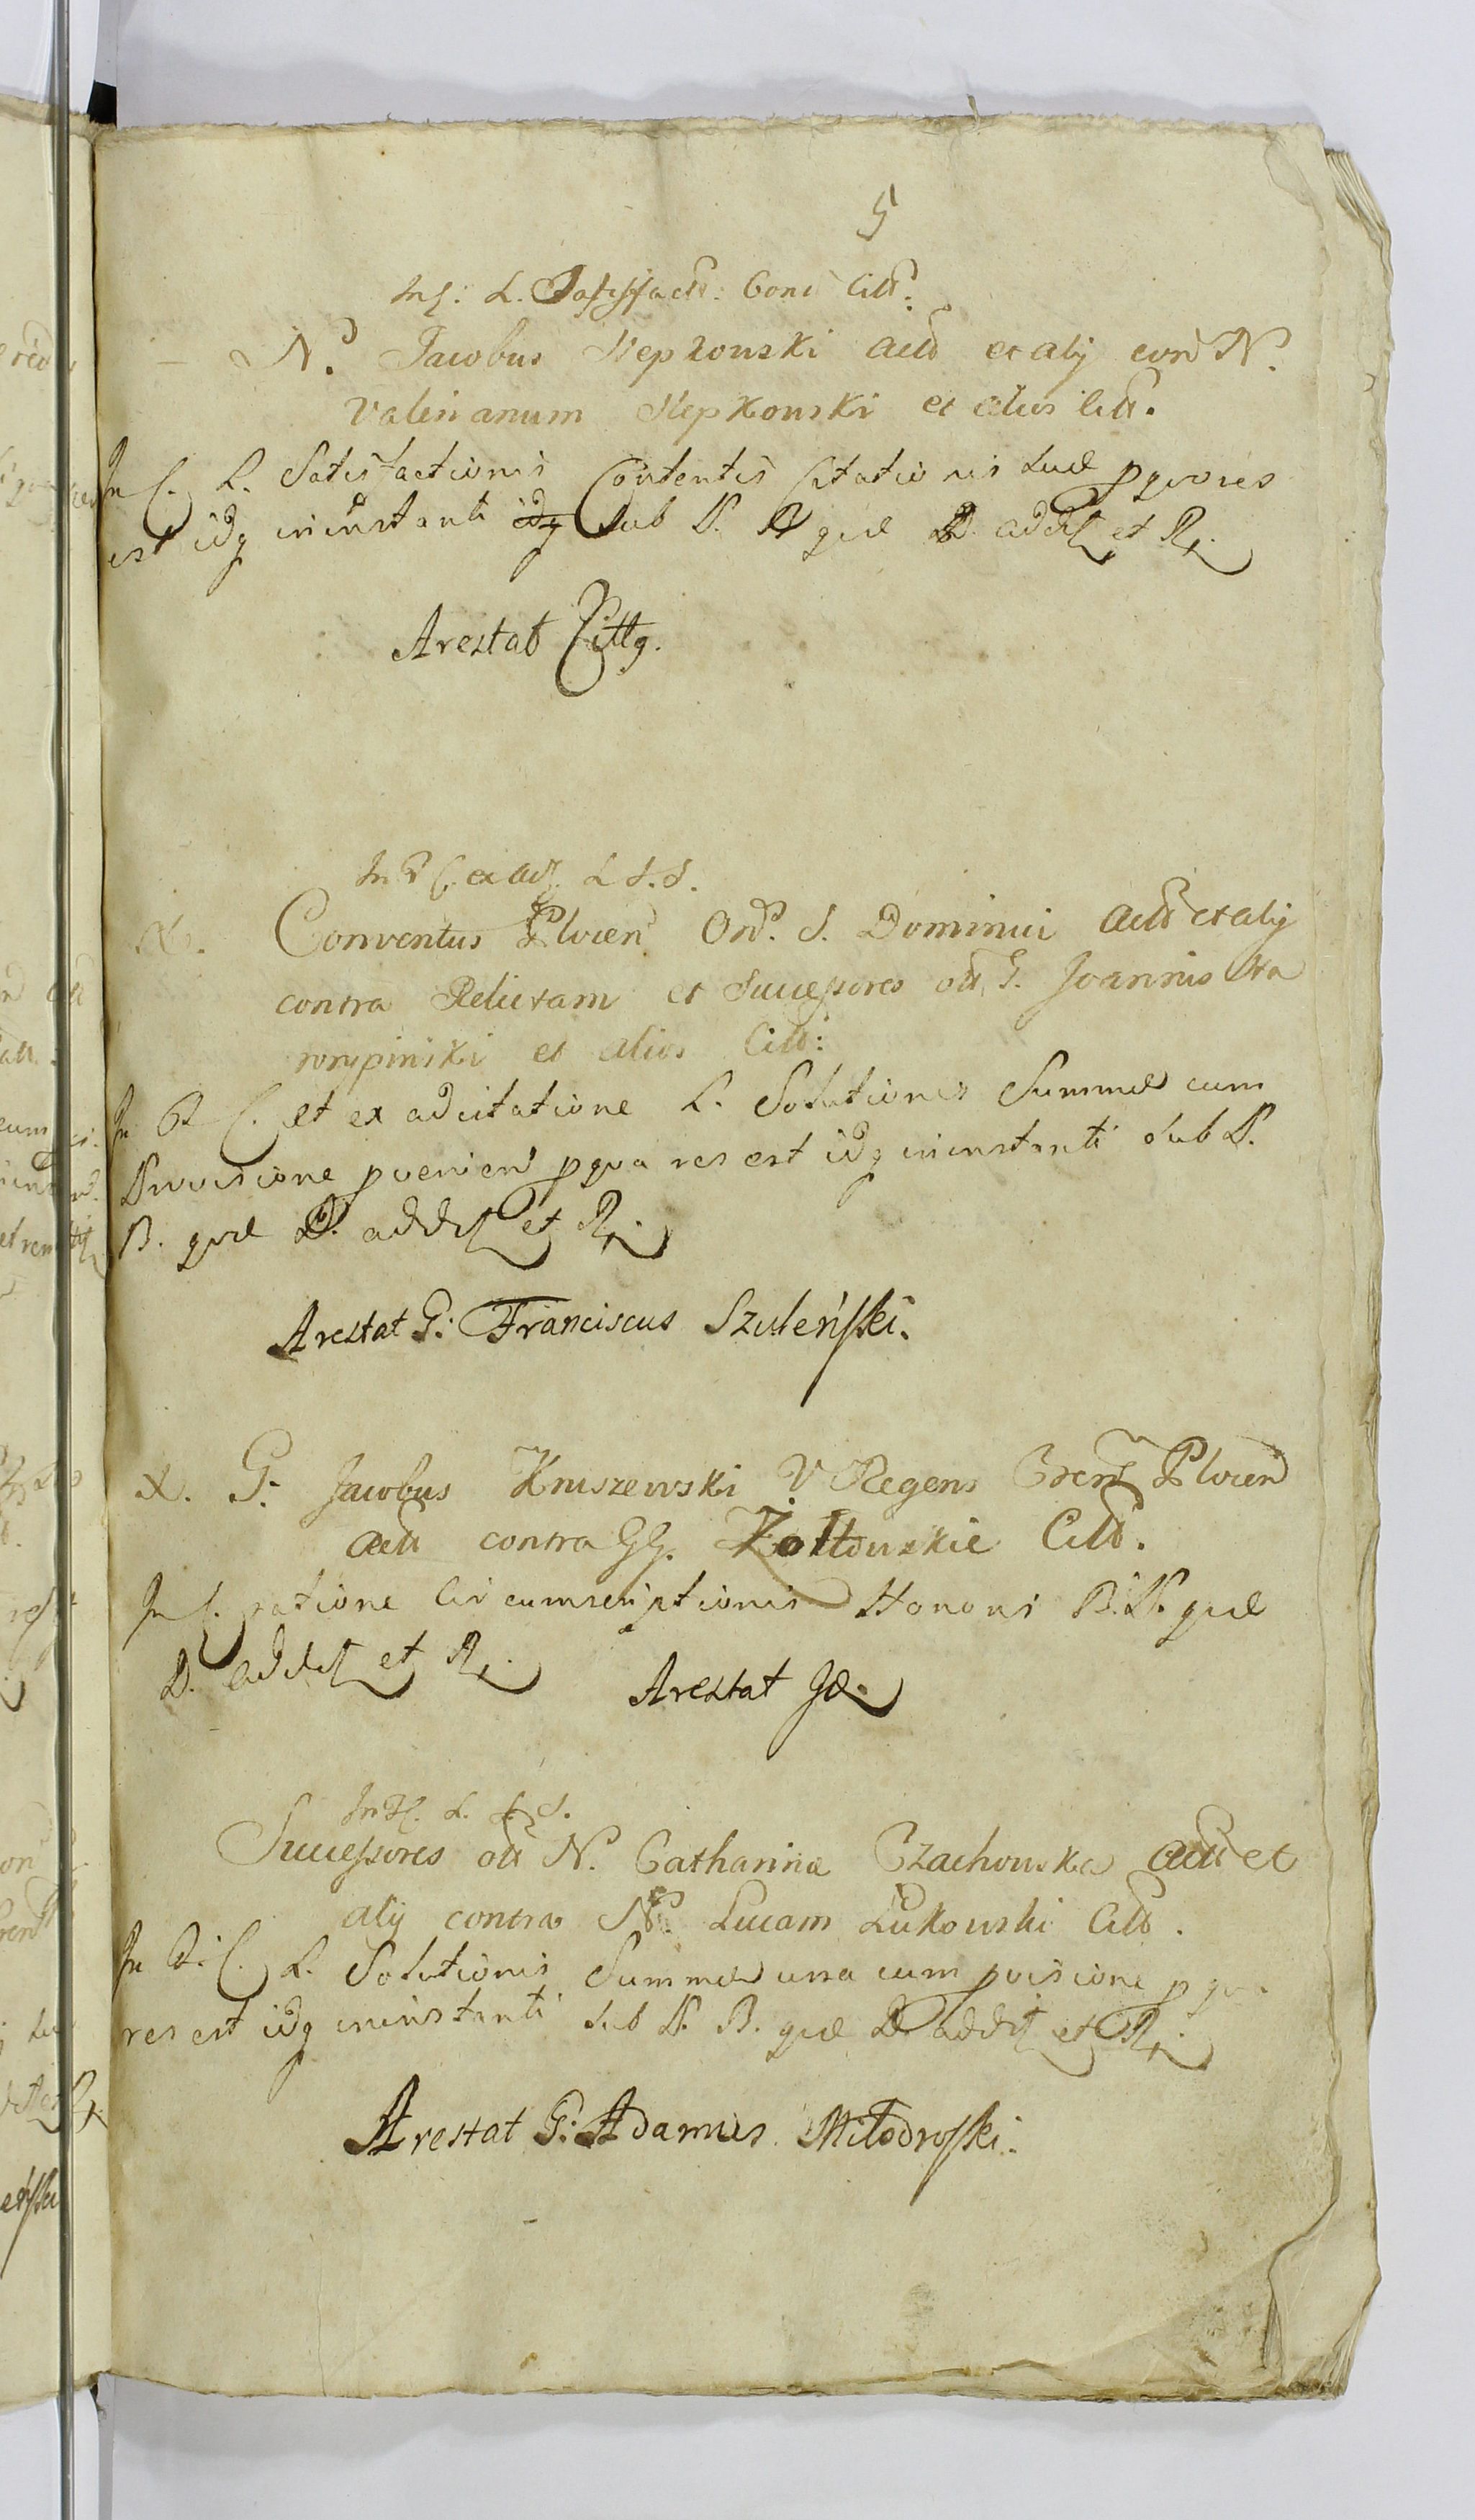 5
In C: L. Satisfactu: Cont Citt.
N. Jacobus Słepkowski actt et alij con N.
Valerianum Słepkowski et alios Citt.
In C. L. Satisfactionis Contentis Citationis suæ pquores
est idq ininstanti idq sub P. B que D. addtt et R.
Arestat Cittq.
In P C. ex adt. L S. S.
x. Conventus Plocen Ord. S. Dominici actt et alij
contra Relictam et Successores ott G. Joannis Kra
rompinski et alios Citt:
In P C. et ex adcitatione L. Solutionis Summæ cum
Provisione pvenien pqua res est idq ininstanti sub P.
B. quæ D. addtt et R.
Arestat G: Franciscus Szuleński.
x. G: Jacobus Kniszewski V Regens Cren Plocen
actt contra GG. Żołtowskie Citt.
In C. ratione Circumscriptionis Honoris B. P. quæ
D. addtt et R. Arestat Jd.
In P C. L. S. S.
Successores ott N. Catharinæ Czachowska actt et
alij contra N. Lucam Łukowski Citt.
In P. C. L. Solutionis Summæ una cum pvisione p qua
res est idq ininstanti sub P. B. quæ D addtt et R.
Arestat G: Adamus Miłodroski.